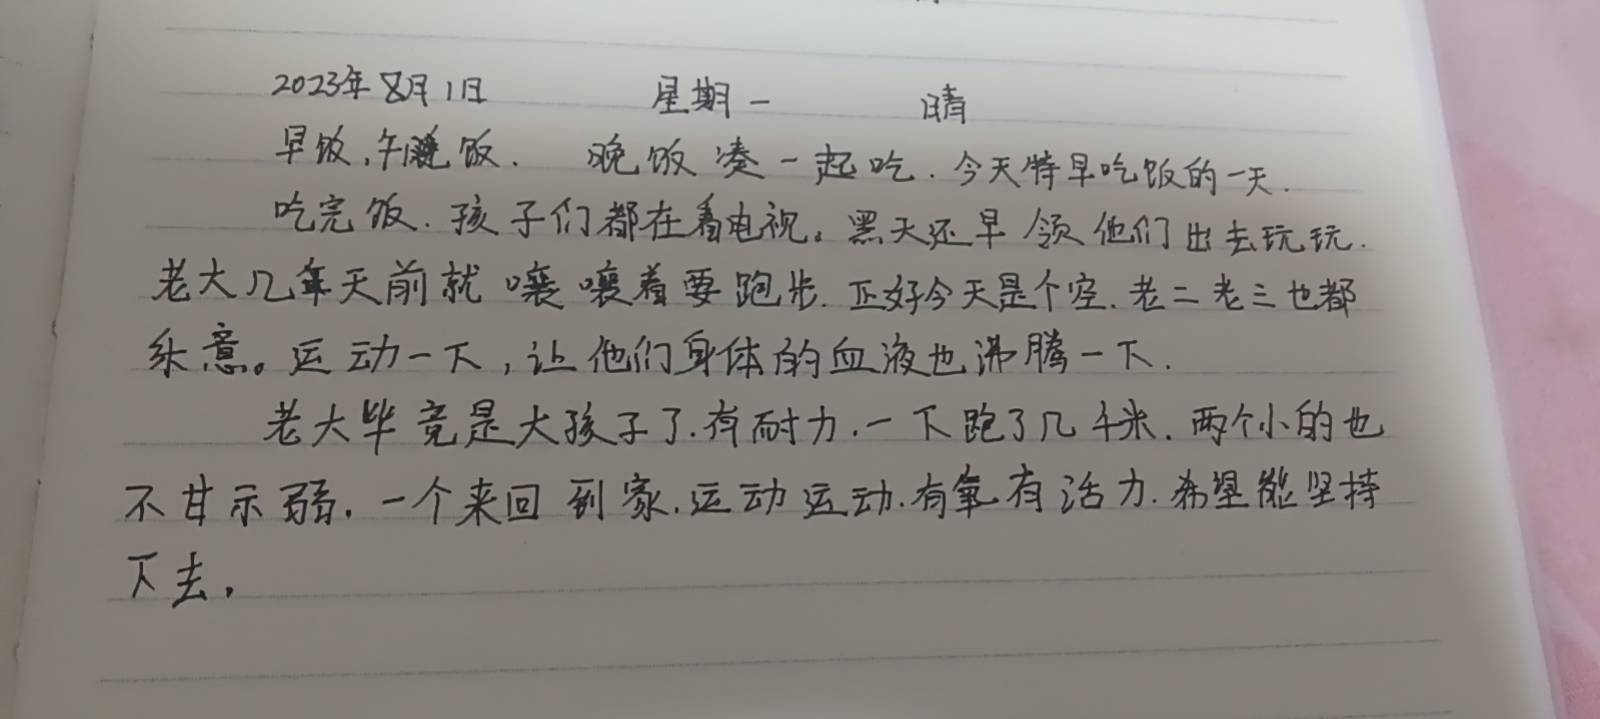 2023年8月1日 星期一 晴
早饭,午饭. 晚饭凑一起吃.今天特早吃饭的一天.
吃完饭.孩子们都在看电视。黑天还早领他们出去玩玩.
老大几天前就嚷嚷着要跑步.正好今天是个空.老二老三也都
乐意。运动一下,让他们身体的血液也沸腾一下.
老大毕竟是大孩子了.有耐力.一下跑了几千米.两个小的也
不甘示弱.一个来回到家.运动运动.有氧有活力.希望能坚持
下去.